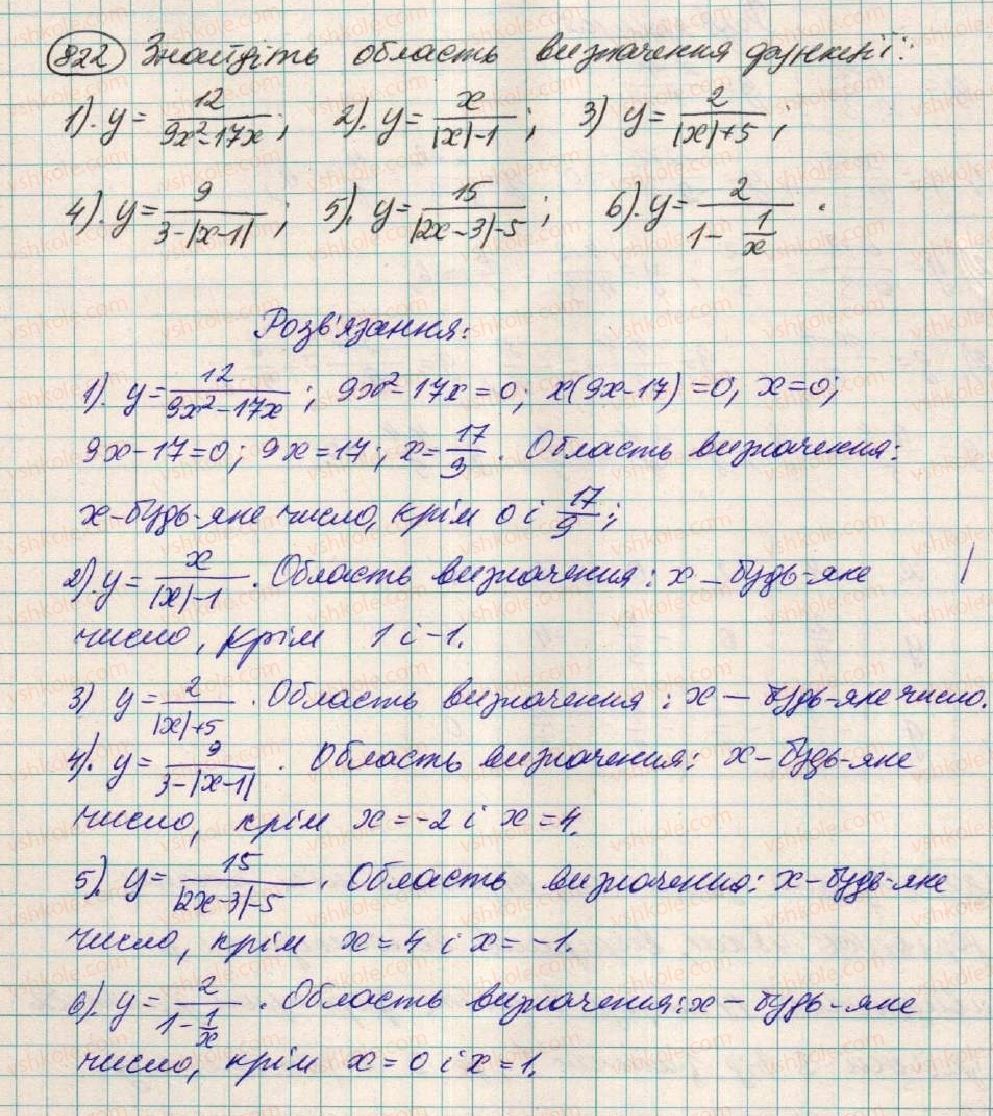 822 Знайдіть область визначення функції:
1). y = 12/(9x²-17x); 2). y = x/(|x|-1); 3) y = 2/(|x|+5);
4). y = 9/(3-|x-1|); 5). y = 15/(|2x-3|-5); 6). y = 2/(1-1/x).
Розв'язання:
1). y = 12/(9x²-17x); 9x²-17x=0; x(9x-17)=0; x=0;
9x-17=0; 9x=17; x=17/9. Область визначення:
x-будь-яке число, крім 0 і 17/9;
2). y = x/(|x|-1). Область визначення: x - будь-яке
число, крім 1 і -1.
3) y = 2/(|x|+5). Область визначення: x - будь-яке число.
4). y = 9/(3-|x-1|). Область визначення: x - будь-яке
число, крім x=-2 і x=4.
5). y = 15/(|2x-3|-5). Область визначення: x - будь-яке
число, крім x=4 і x=-1.
6). y = 2/(1-1/x). Область визначення: x - будь-яке
число, крім x=0 і x=1.